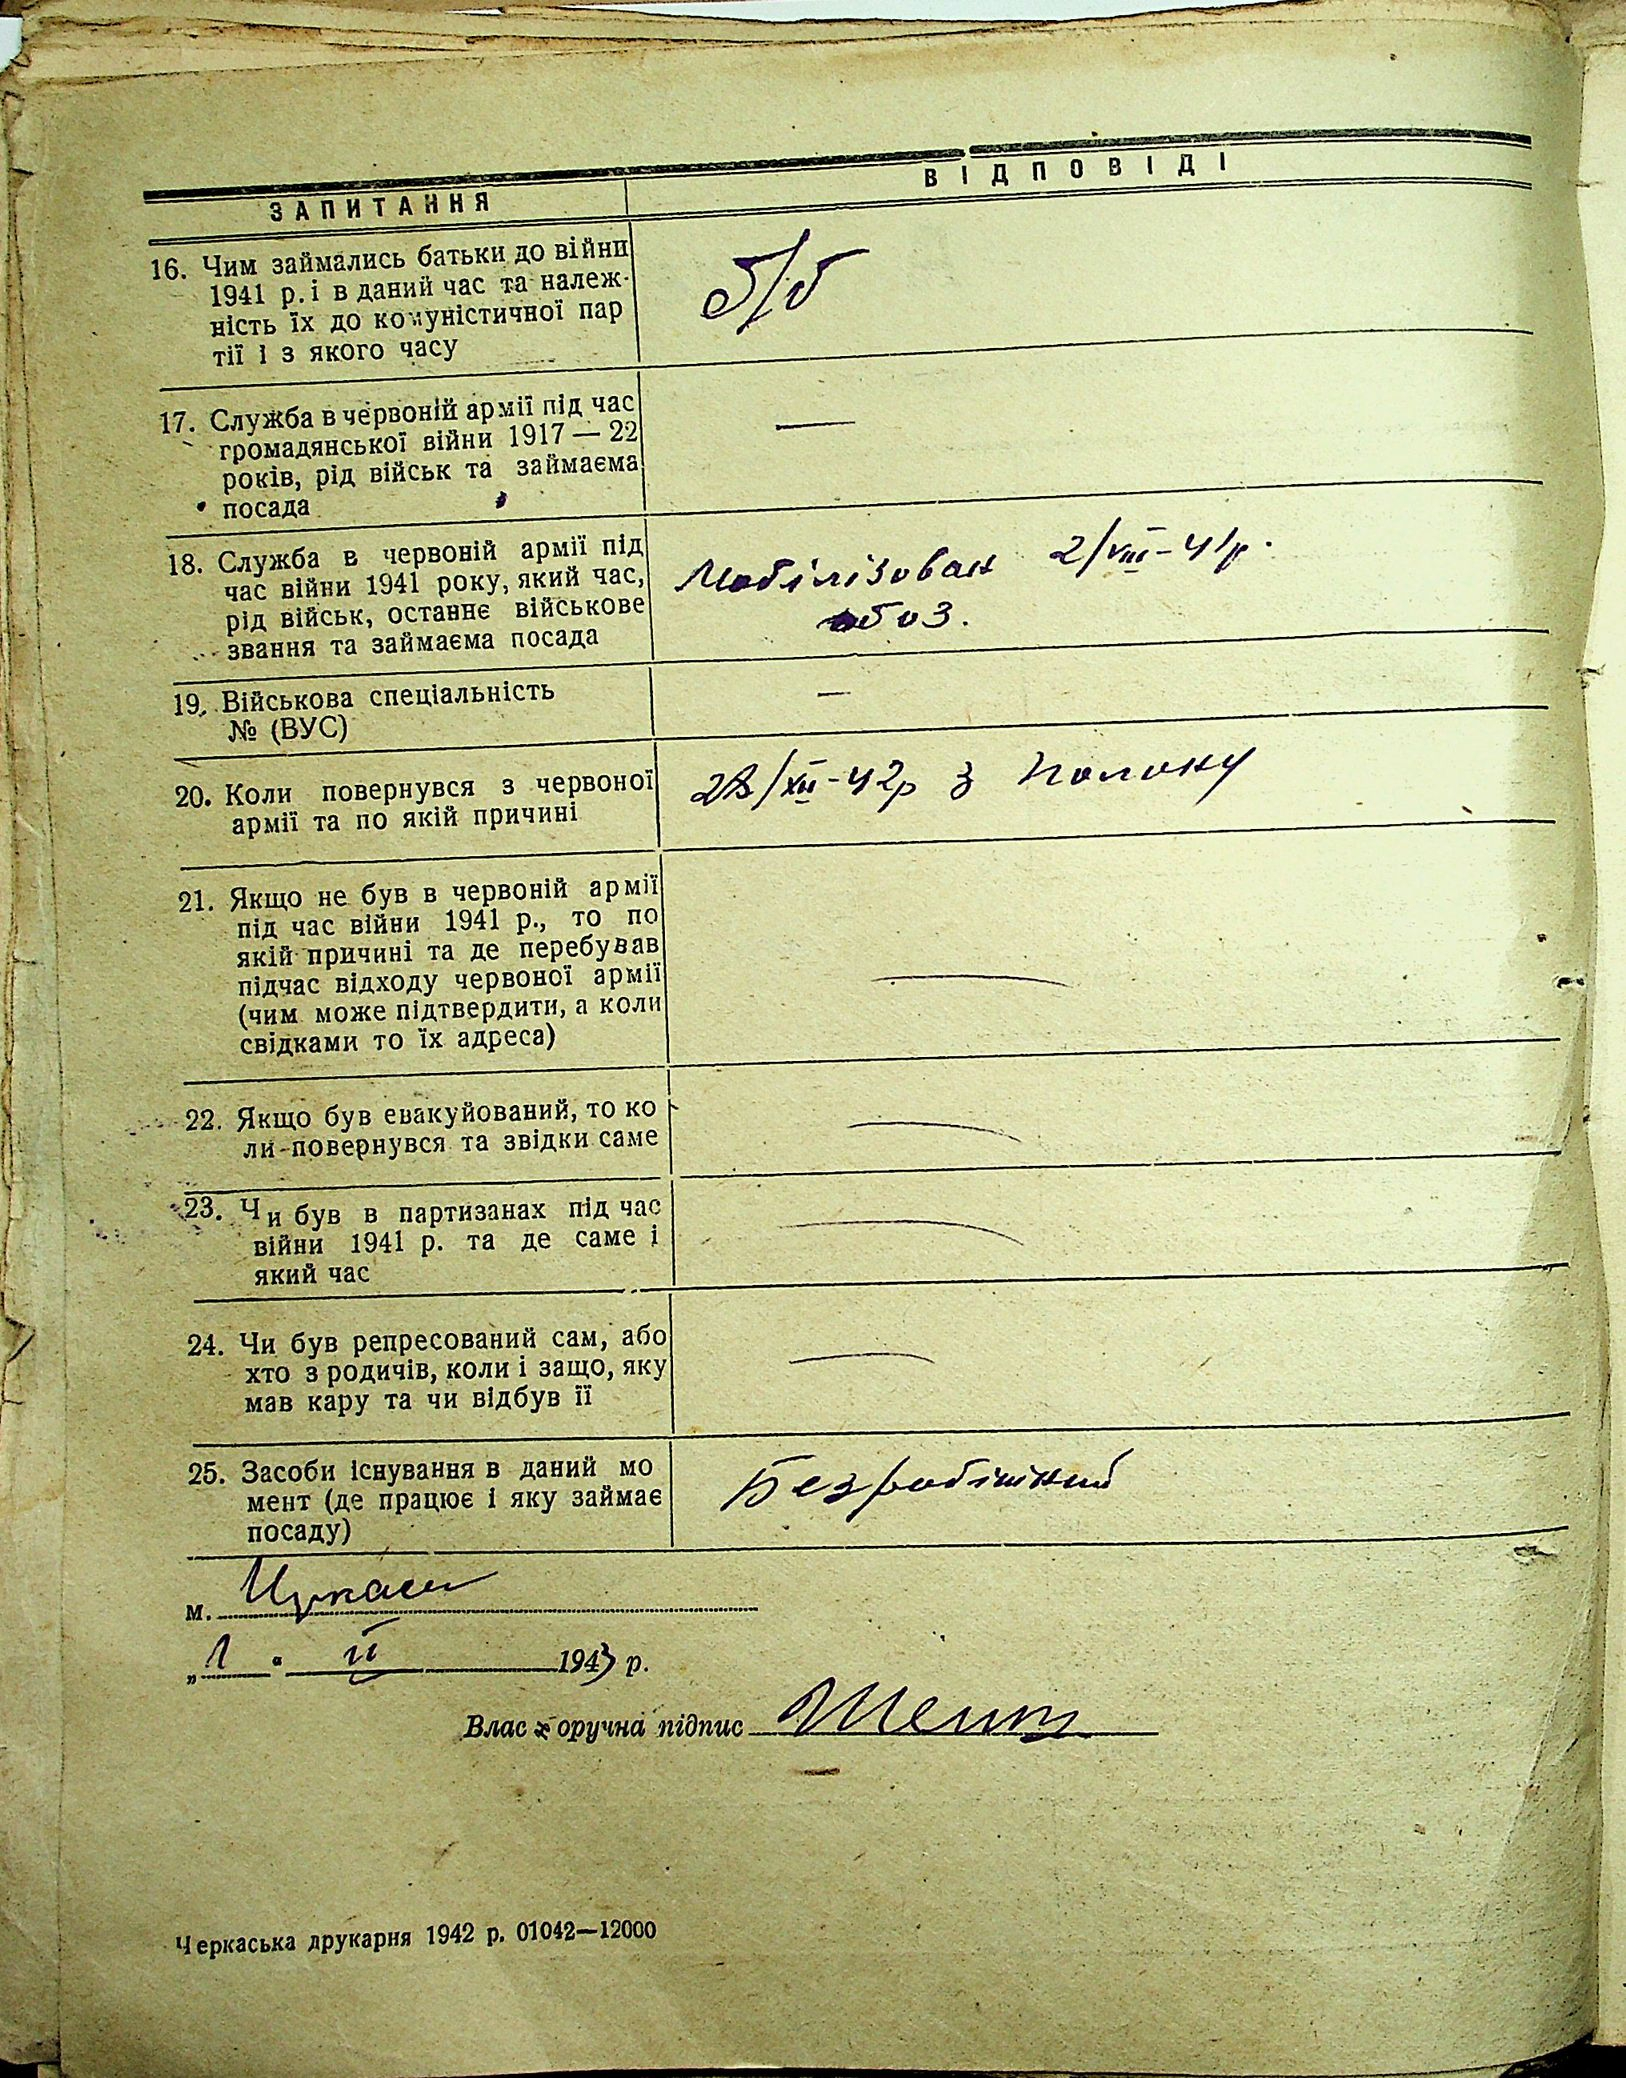 ЗАПИТАННЯ
ВІДПОВІДІ
16. Чим займались батьки до війни
1941 р. і в даний час та належ-
ність їх до комуністичної пар
тії і з якого часу
б/б
17. Служба в червоній армії під час
громадянської війни 1917 — 22
років, рід військ та займаєма
посада
—
18. Служба в червоній армії під
час війни 1941 року, який час,
рід військ, останнє військове
звання та займаєма посада
Мобілізован 2/VIII-41р.
обоз.
19. Військова спеціальність
№ (ВУС)
—
20. Коли повернувся з червоної
армії та по якій причині
/XII-42р з полону
21. Якщо не був в червоній армії
під час війни 1941 р., то по
якій причині та де перебував
підчас відходу червоної армії
(чим може підтвердити, а коли
свідками то їх адреса)
—
22. Якщо був евакуйований, то ко
ли-повернувся та звідки саме
—
23. Чи був в партизанах під час
війни 1941 р. та де саме і
який час
—
24. Чи був репресований сам, або
хто з родичів, коли і защо, яку
мав кару та чи відбув її
—
25. Засоби існування в даний мо
мент (де працює і яку займає
посаду)
Безробітний
м. Черкаси
„1" II 1943 р.
Власноручна підпис
Черкаська друкарня 1942 р. 01042—12000